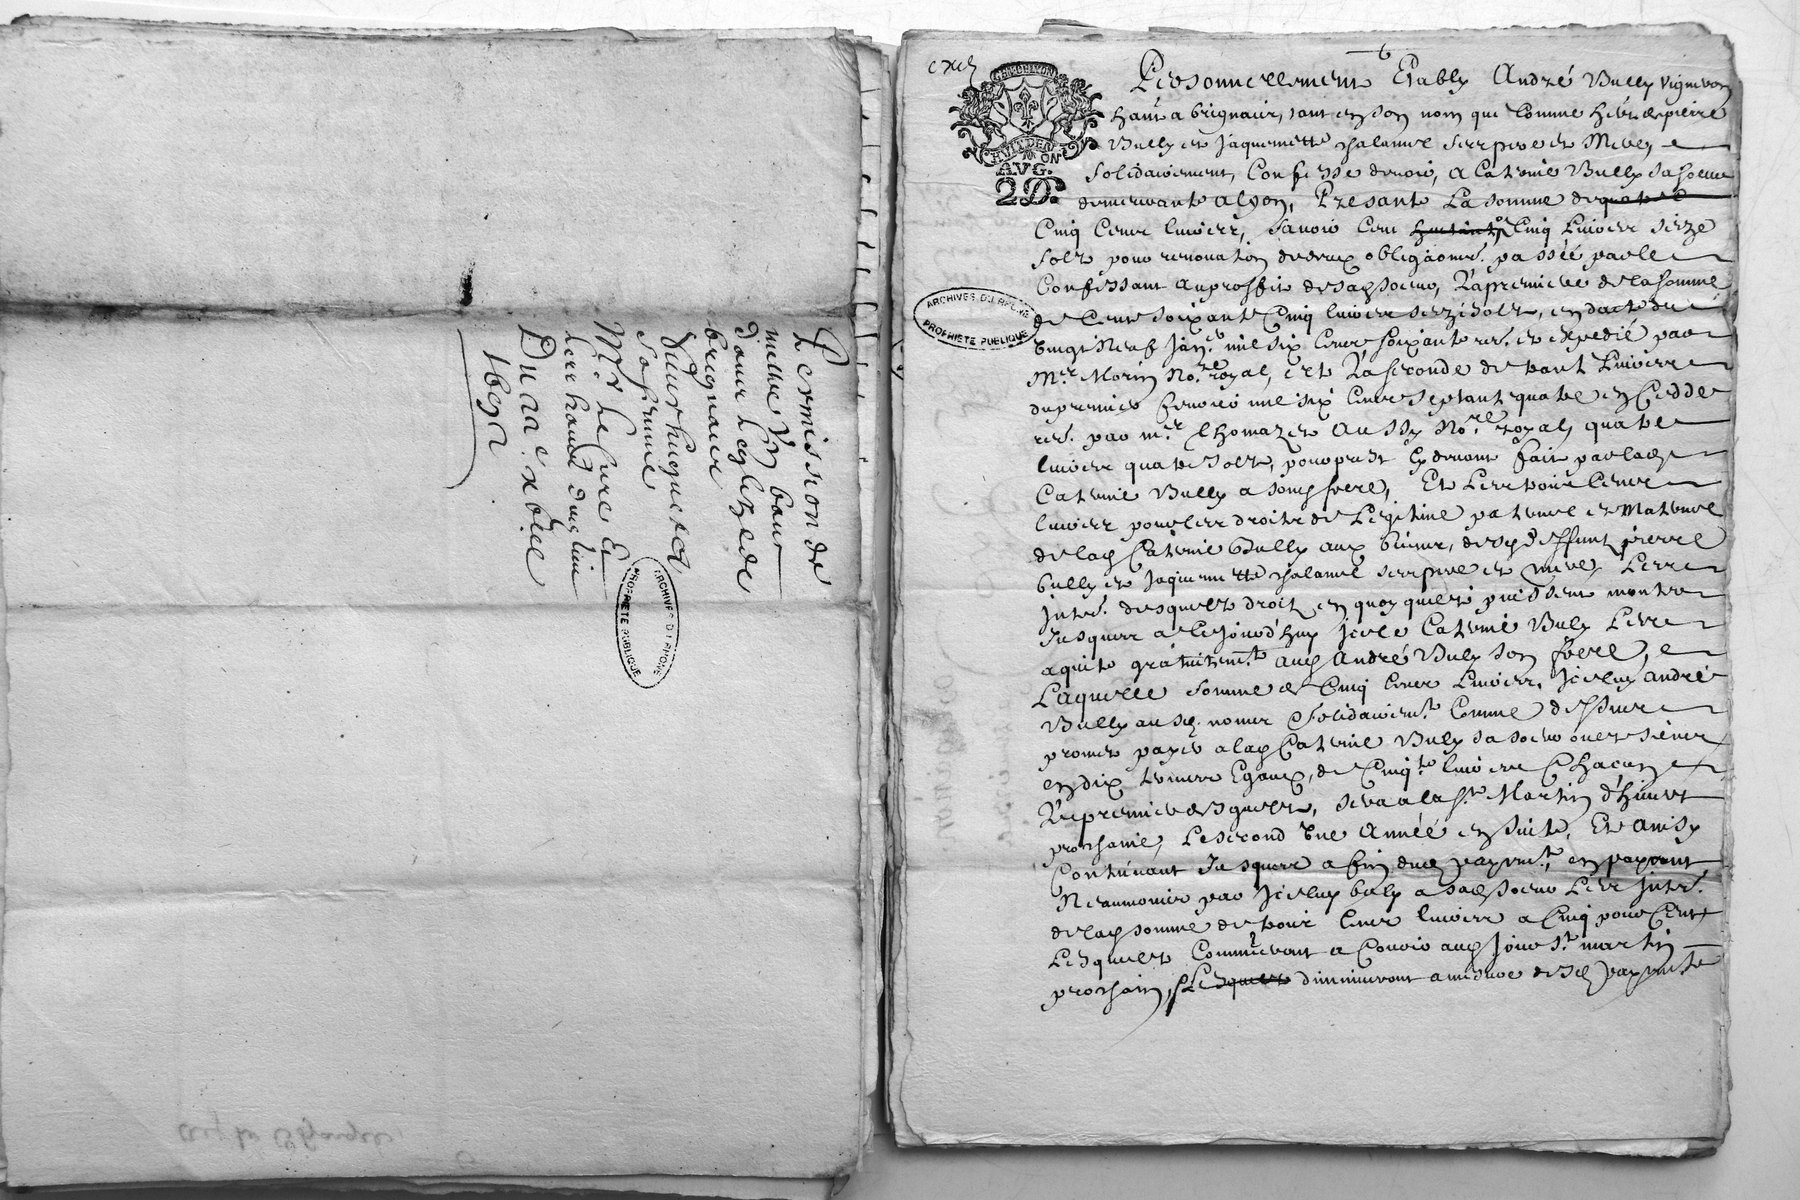 Permission de
mettre Un banc
dans L'eglize de
brignaiz
sa femme
Mrs Le Cure Et
Du 22e xbre
1692
ARCHIVES DU RHONE
PROPRIETE PUBLIQUE
G. DE LYON
HUIT DEN
ON
AVG.
2D.
ARCHIVES DU RHONE
PROPRIETE PUBLIQUE
Personnellement Estably André Bully vigneron
hant a brignaiz, tant en son nom que Comme herit. de pierre
Bully et Jaquemette chalamel ses pere et Mere,
solidairement, Confesse devoir, A Caterine Bully sa soeur
demeurante a lyon, Presante La somme de quatre
Cinq Cent livres, savoir Cent Cinq Livres seize
solz pour renovation de deux obligaons. passée par le
Confessant au proffit de sad. soeur, La premiere de la somme
de Cent soixante Cinq livres seize solz, en datte du
vingt Neuf Janer. mil six Cent soixante et expedié par
Mr. Morin Nore. royal, et La seconde de Livres
du premier fevrier mil six Cent septante quatre
par mr. thomazet Aussy Nore. royal, quatre
livres quatre solz, pour prest Cy devant fait par lad.
Caterine Bully a sond. frere, Et Les Cent
livres pour les droitz de Legitime paternel et Maternel
de lad. Caterine Bully aux biens, desd. deffunt pierre
bully et Jaquemette chalamel ses pere et mere, Les
Interz. desquelz droitz en quoy qu'ilz puissent monter
Jusques a Cejourd'huy Icelle Caterine Bully Les
aquite gratuitemt. aud. André Bully son frere,
Laquelle somme de Cinq Cent Livres, Icelluy André
Bully ausd. noms solidairemt. Comme dessus
promet payer a lad. Caterine Bully sa soeur ou es siens
en dix termes Egaux, de Cinqte. livres Chacun
Le premier desquelz, sera a la St. Martin d'hiver
prochaine, Le second Une Année en suite, Et Ainsy
Continuant Jusques a fin dud. payemt. en payant
Neaumoins par Icelluy bully a sad. soeur Les Interz.
de lad. somme de Cent livres a Cinq pour Cent
Lesquelz Commenceront a Courir aud. Jour St. martin
prochain, Lesquelz diminueront a mesure desd. payemts.